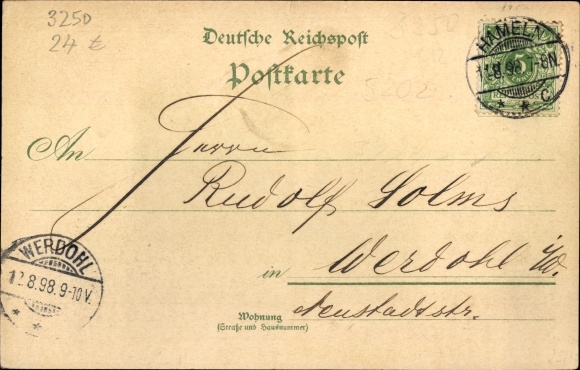 3250
24 €
Deutsche Reichspost
Postkarte
HAMELN
12.8.98. 7-8N.
* * C.
An Herrn
Rudolf Solms
in Werdohl i/W.
Wohnung
(Straße und Hausnummer)
Neustadtstr.
WERDOHL
12.8.98. 9-10 V.
* *